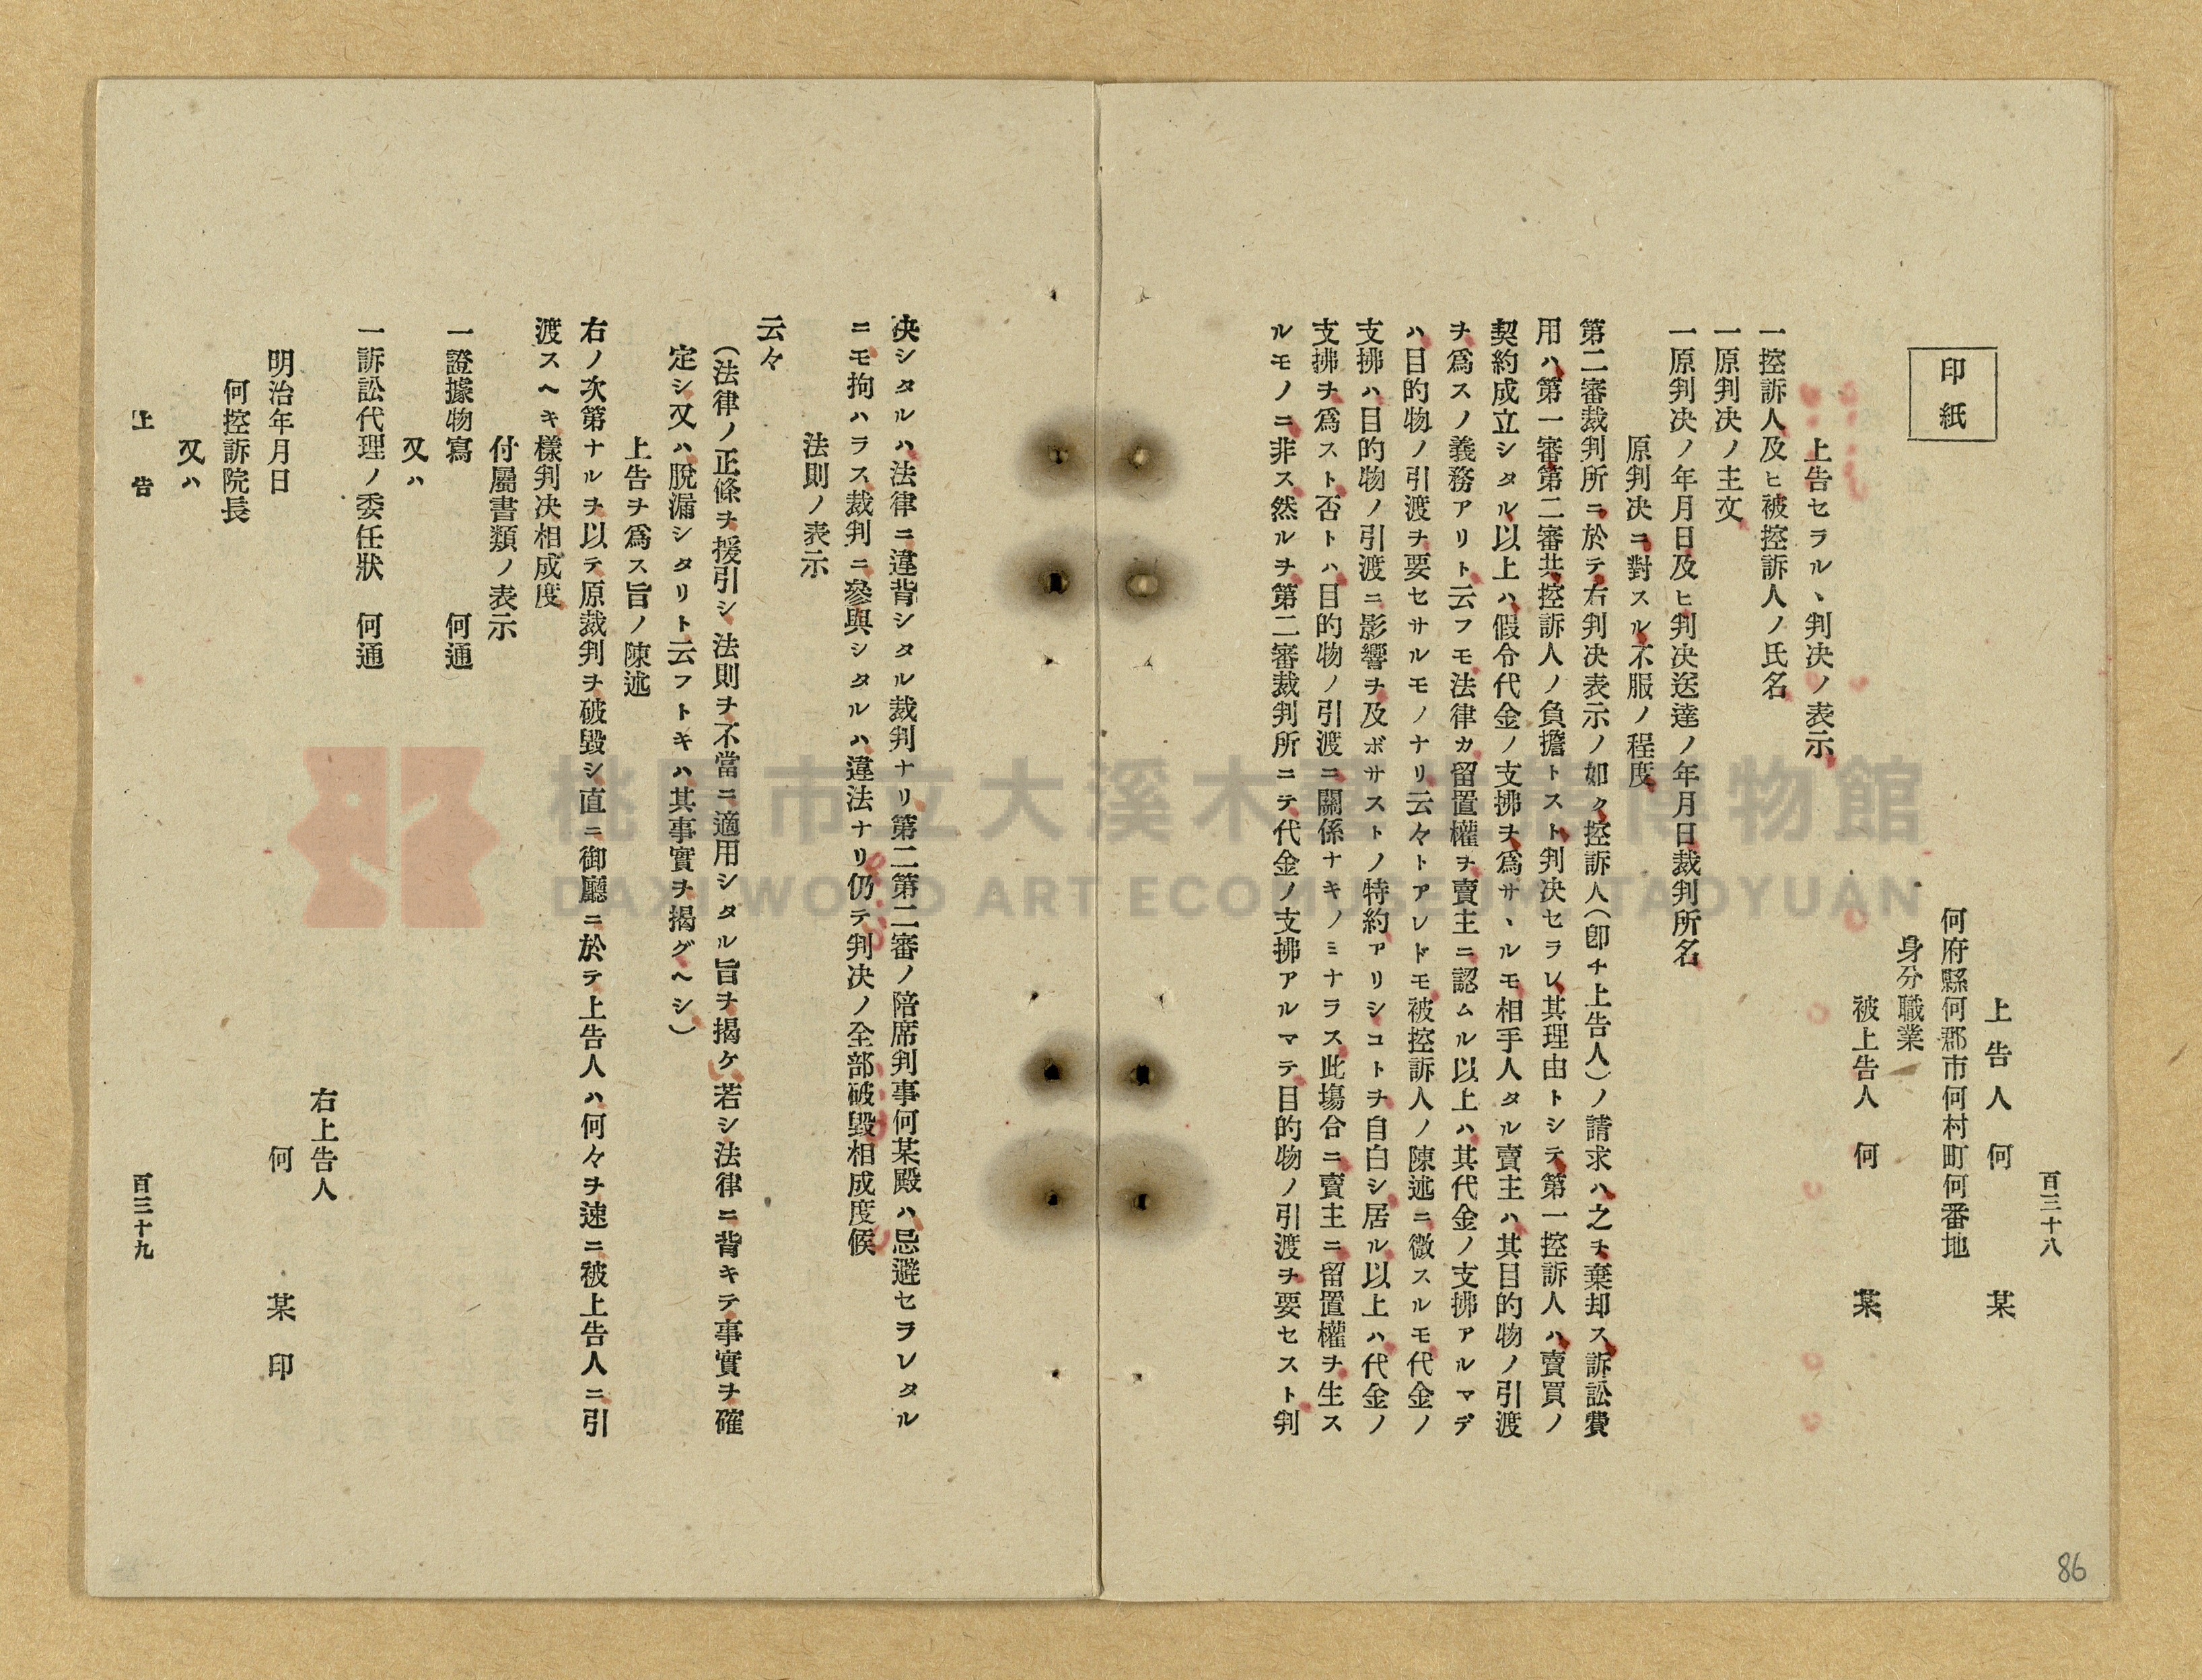 百三十八
上告人 何 某
何府縣何郡市何村町何番地
身分職業
被上告人 何 某
印紙
上告セラル、判决ノ表示
一控訴人及ヒ被控訴人ノ氏名
一原判决ノ主文
一原判决ノ年月日及ヒ判决送達ノ年月日裁判所名
原判决ニ對スル不服ノ程度
第二審裁判所ニ於テ右判决表示ノ如ク控訴人(卽チ上告人)ノ請求ハ之ヲ棄却ス訴訟費
用ハ第一審第二審共控訴人ノ負擔トスト判决セラレ其理由トシテ第一控訴人ハ賣買ノ
契約成立シタル以上ハ假令代金ノ支拂ヲ爲サヽルモ相手人タル賣主ハ其目的物ノ引渡
ヲ爲スノ義務アリト云フモ法律カ留置權ヲ賣主ニ認ムル以上ハ其代金ノ支拂アルマデ
ハ目的物ノ引渡ヲ要セサルモノナリ云々トアレドモ被控訴人ノ陳述ニ徵スルモ代金ノ
支拂ハ目的物ノ引渡ニ影響ヲ及ボサストノ特約アリシコトヲ自白シ居ル以上ハ代金ノ
支拂ヲ爲スト否トハ目的物ノ引渡ニ關係ナキノミナラス此塲合ニ賣主ニ留置權ヲ生ス
ルモノニ非ス然ルヲ第二審裁判所ニテ代金ノ支拂アルマテ目的物ノ引渡ヲ要セスト判
决シタルハ法律ニ違背シタル裁判ナリ第二第二審ノ陪席判事何某殿ハ忌避セラレタル
ニモ拘ハラス裁判ニ參與シタルハ違法ナリ仍テ判决ノ全部破毀相成度候
法則ノ表示
云々
(法律ノ正條ヲ援引シ法則ヲ不當ニ適用シタル旨ヲ揭ケ若シ法律ニ背キテ事實ヲ確
定シ又ハ脫漏シタリト云フトキハ其事實ヲ揭グヘシ)
上告ヲ爲ス旨ノ陳述
右ノ次第ナルヲ以テ原裁判ヲ破毀シ直ニ御廳ニ於テ上告人ハ何々ヲ速ニ被上告人ニ引
渡スヘキ樣判决相成度
付屬書類ノ表示
一證據物寫 何通
又ハ
一訴訟代理ノ委任狀 何通
右上告人
明治年月日 何 某 印
何控訴院長
又ハ
上告 百三十九
86
桃園市立大溪木藝生態博物館
DAXI WOOD ART ECOMUSEUM, TAOYUAN